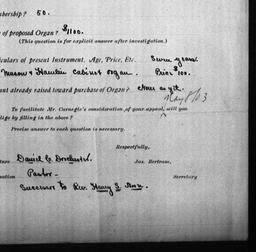 mbership? 50.
of proposed Organ? $1100.
(This question is for explicit answer after investigation.)
culars of present Instrument, Age, Price, Etc. Seven years
Mason & Hamlin cabinet organ. Price $100.
unt already raised toward purchase of Organ? None as yet.
To facilitate Mr. Carnegie's consideration of your appeal, will you
lige by filling in the above?
Precise answer to each question is necessary.
Respectfully,
ture Daniel C. Dorchester. Jas. Bertram,
ation Pastor Secretary
Successor to Rev. Henry